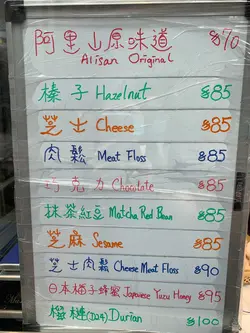 阿里山原味道 $70
Alisan Original
榛子 Hazelnut $85
芝士 Cheese $85
肉鬆 Meat Floss $85
巧克力 Chocolate $85
抹茶紅豆 Matcha Red Bean $85
芝麻 Sesame $85
芝士肉鬆 Cheese Meat Floss $90
日本柚子蜂蜜 Japanese Yuzu Honey $95
榴槤(D24) Durian $100